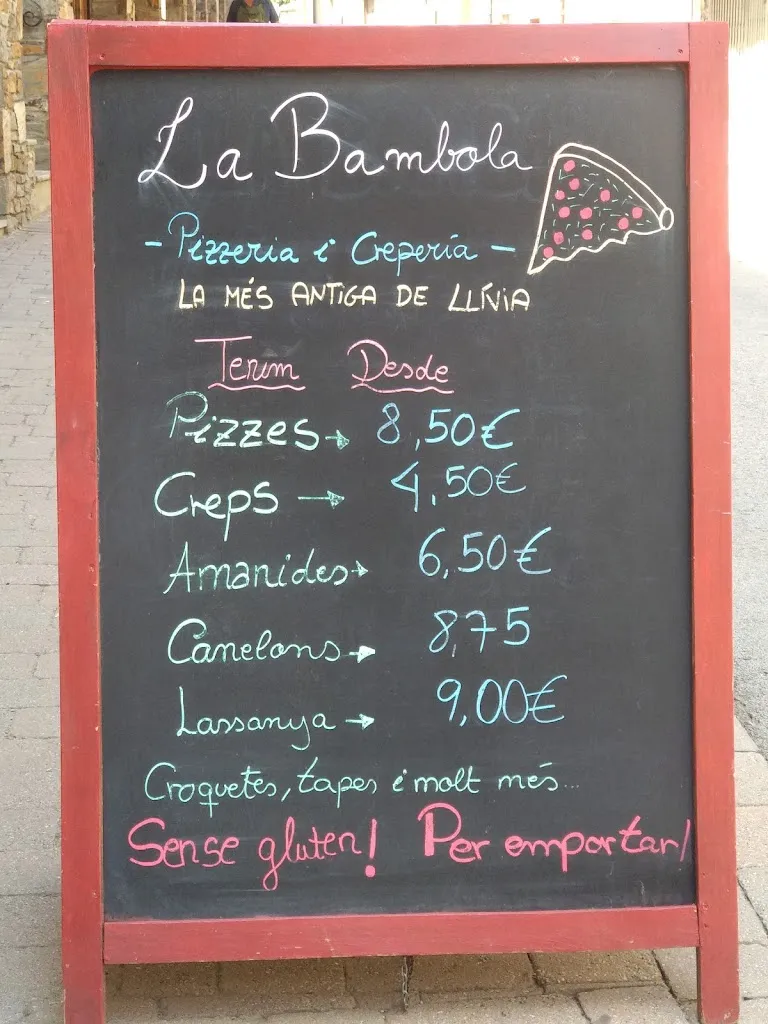 La Bambola
- Pizzeria i Crepería -
LA MÉS ANTIGA DE LLÍVIA
Tenim Desde
Pizzes → 8,50€
Creps → 4,50€
Amanides → 6,50€
Canelons → 8,75
Lassanya → 9,00€
Croquetes, tapes i molt més...
Sense gluten! Per emportar!